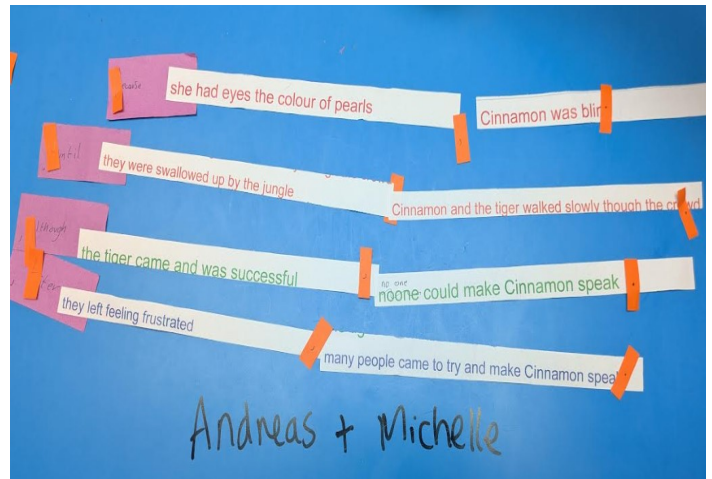 she had eyes the colour of pearls Cinnamon was blin
until they were swallowed up by the jungle Cinnamon and the tiger walked slowly though the crowd
although the tiger came and was successful no one noone could make Cinnamon speak
they left feeling frustrated many people came to try and make Cinnamon speak
Andreas + Michelle